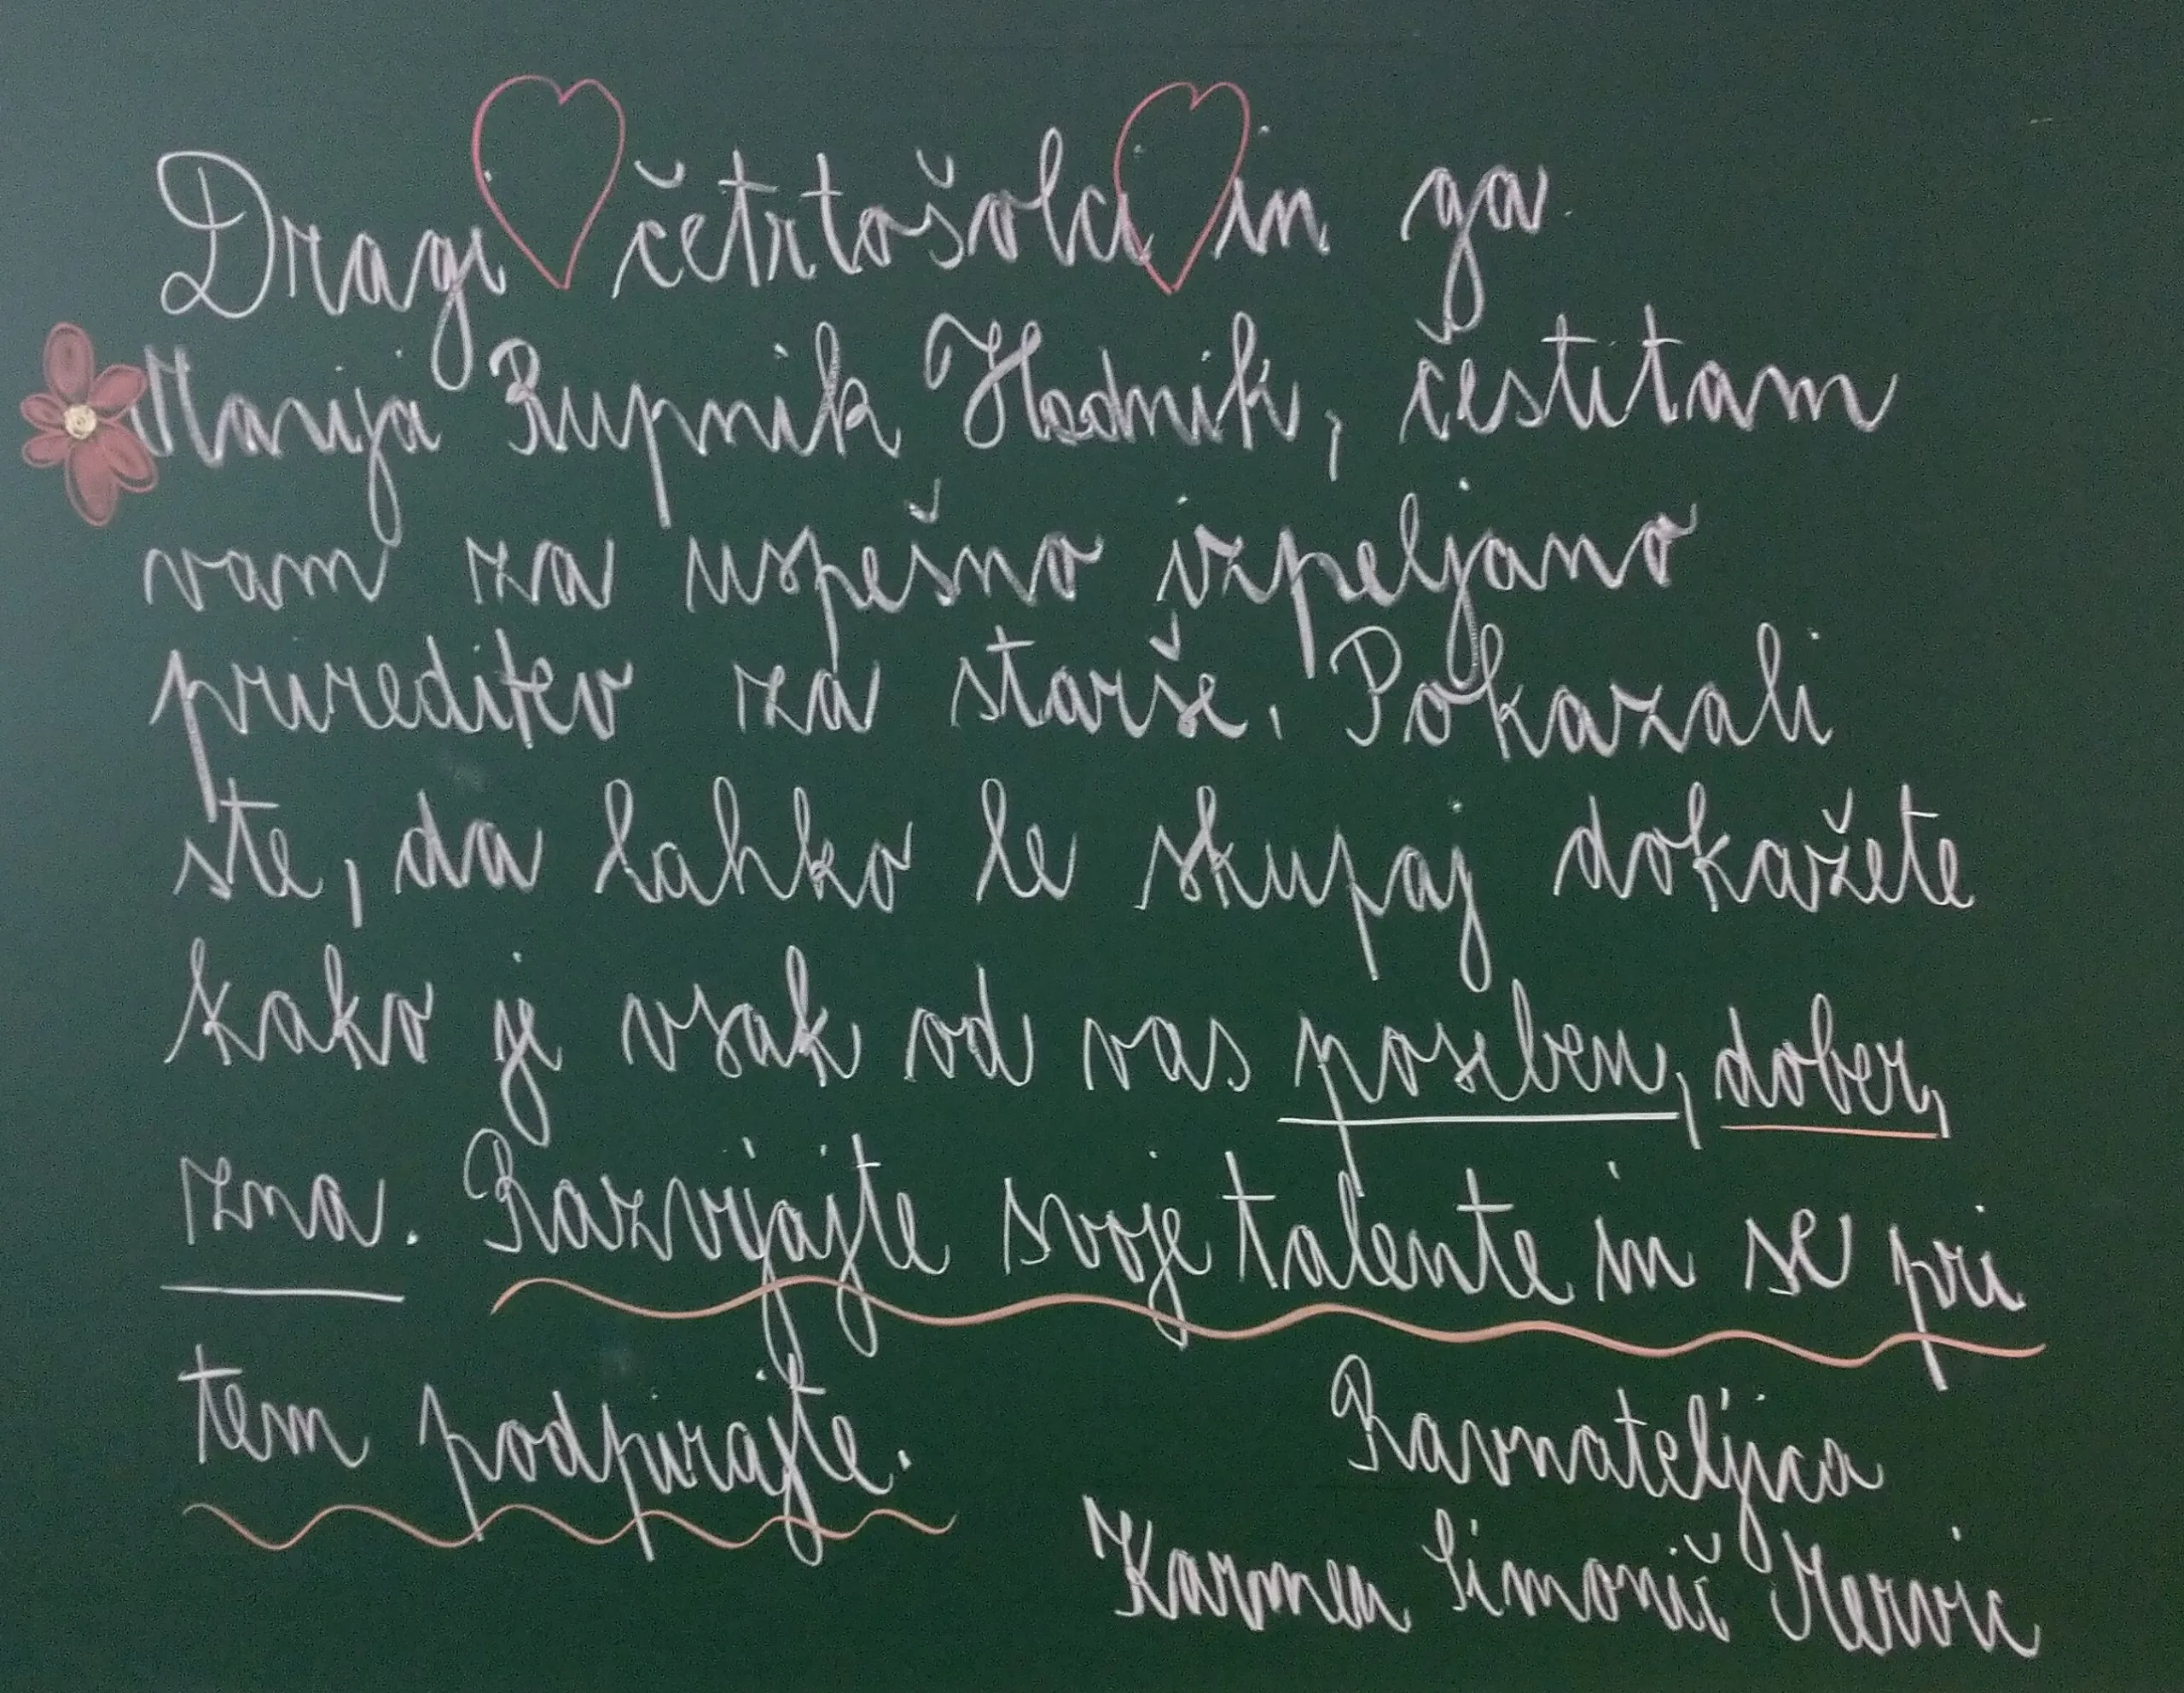 Dragi četrtošolci in ga.
Marija Rupnik Hladnik, čestitam
vam za uspešno izpeljano
prireditev za starše. Pokazali
ste, da lahko le skupaj dokažete
kako je vsak od vas poseben, dober,
zna. Razvijajte svoje talente in se pri
tem podpirajte.
Ravnateljica
Karmen Simonič Mervic